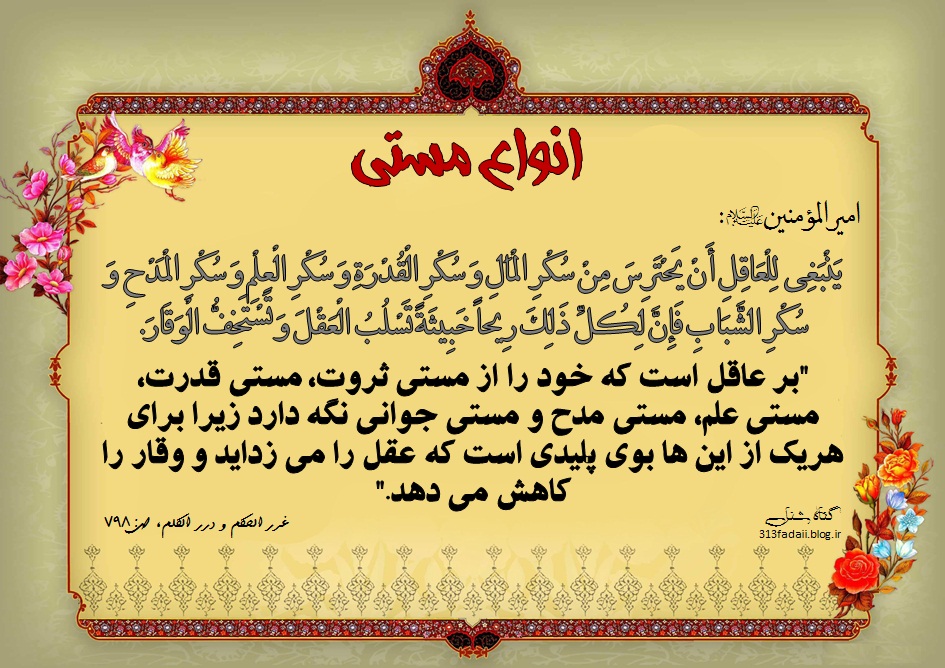 انواع مستی
امیرالمؤمنین علیه‌السلام:
يَنْبَغِي لِلْعَاقِلِ أَنْ يَحْتَرِسَ مِنْ سُكْرِ الْمَالِ وَ سُكْرِ الْقُدْرَةِ وَ سُكْرِ الْعِلْمِ وَ سُكْرِ الْمَدْحِ وَ
سُكْرِ الشَّبَابِ فَإِنَّ لِكُلِّ ذَلِكَ رِيحاً خَبِيثَةً تَسْلُبُ الْعَقْلَ وَ تَسْتَخِفُّ الْوَقَارَ.
"بر عاقل است که خود را از مستی ثروت، مستی قدرت،
مستی علم، مستی مدح و مستی جوانی نگه دارد زیرا برای
هریک از این ها بوی پلیدی است که عقل را می زداید و وقار را
کاهش می دهد."
غرر الحکم و درر الکلم، ص: ۷۹۸
313fadaii.blog.ir